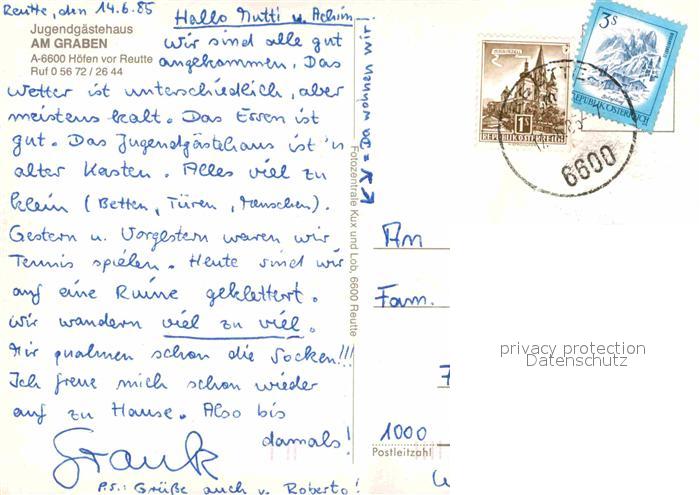 Reutte, den 14.6.85
Hallo Mutti u. Achim!
Jugendgästehaus
AM GRABEN
A-6600 Höfen vor Reutte
Ruf 0 56 72 / 26 44
Wir sind alle gut
angekommen. Das
Wetter ist unterschiedlich, aber
meistens kalt. Das Essen ist
gut. Das Jugendgästehaus ist 'n
alter Kasten. Alles viel zu
klein (Betten, Türen, Menschen).
Gestern u. Vorgestern waren wir
Tennis spielen. Heute sind wir
auf eine Ruine geklettert.
Wir wandern viel zu viel.
Mir qualmen schon die Socken!!!
Ich freue mich schon wieder
auf zu Hause. Also bis
damals!
Frank
P.S.: Grüße auch v. Roberto!
↙↘ = Da wohnen wir!
Fotozentrale Kux und Lob, 6600 Reutte
MARIAZELL
1S
REPUBLIK ÖSTERREICH
3S
REPUBLIK ÖSTERREICH
6600
An
Fam.
1000
Postleitzahl
privacy protection
Datenschutz